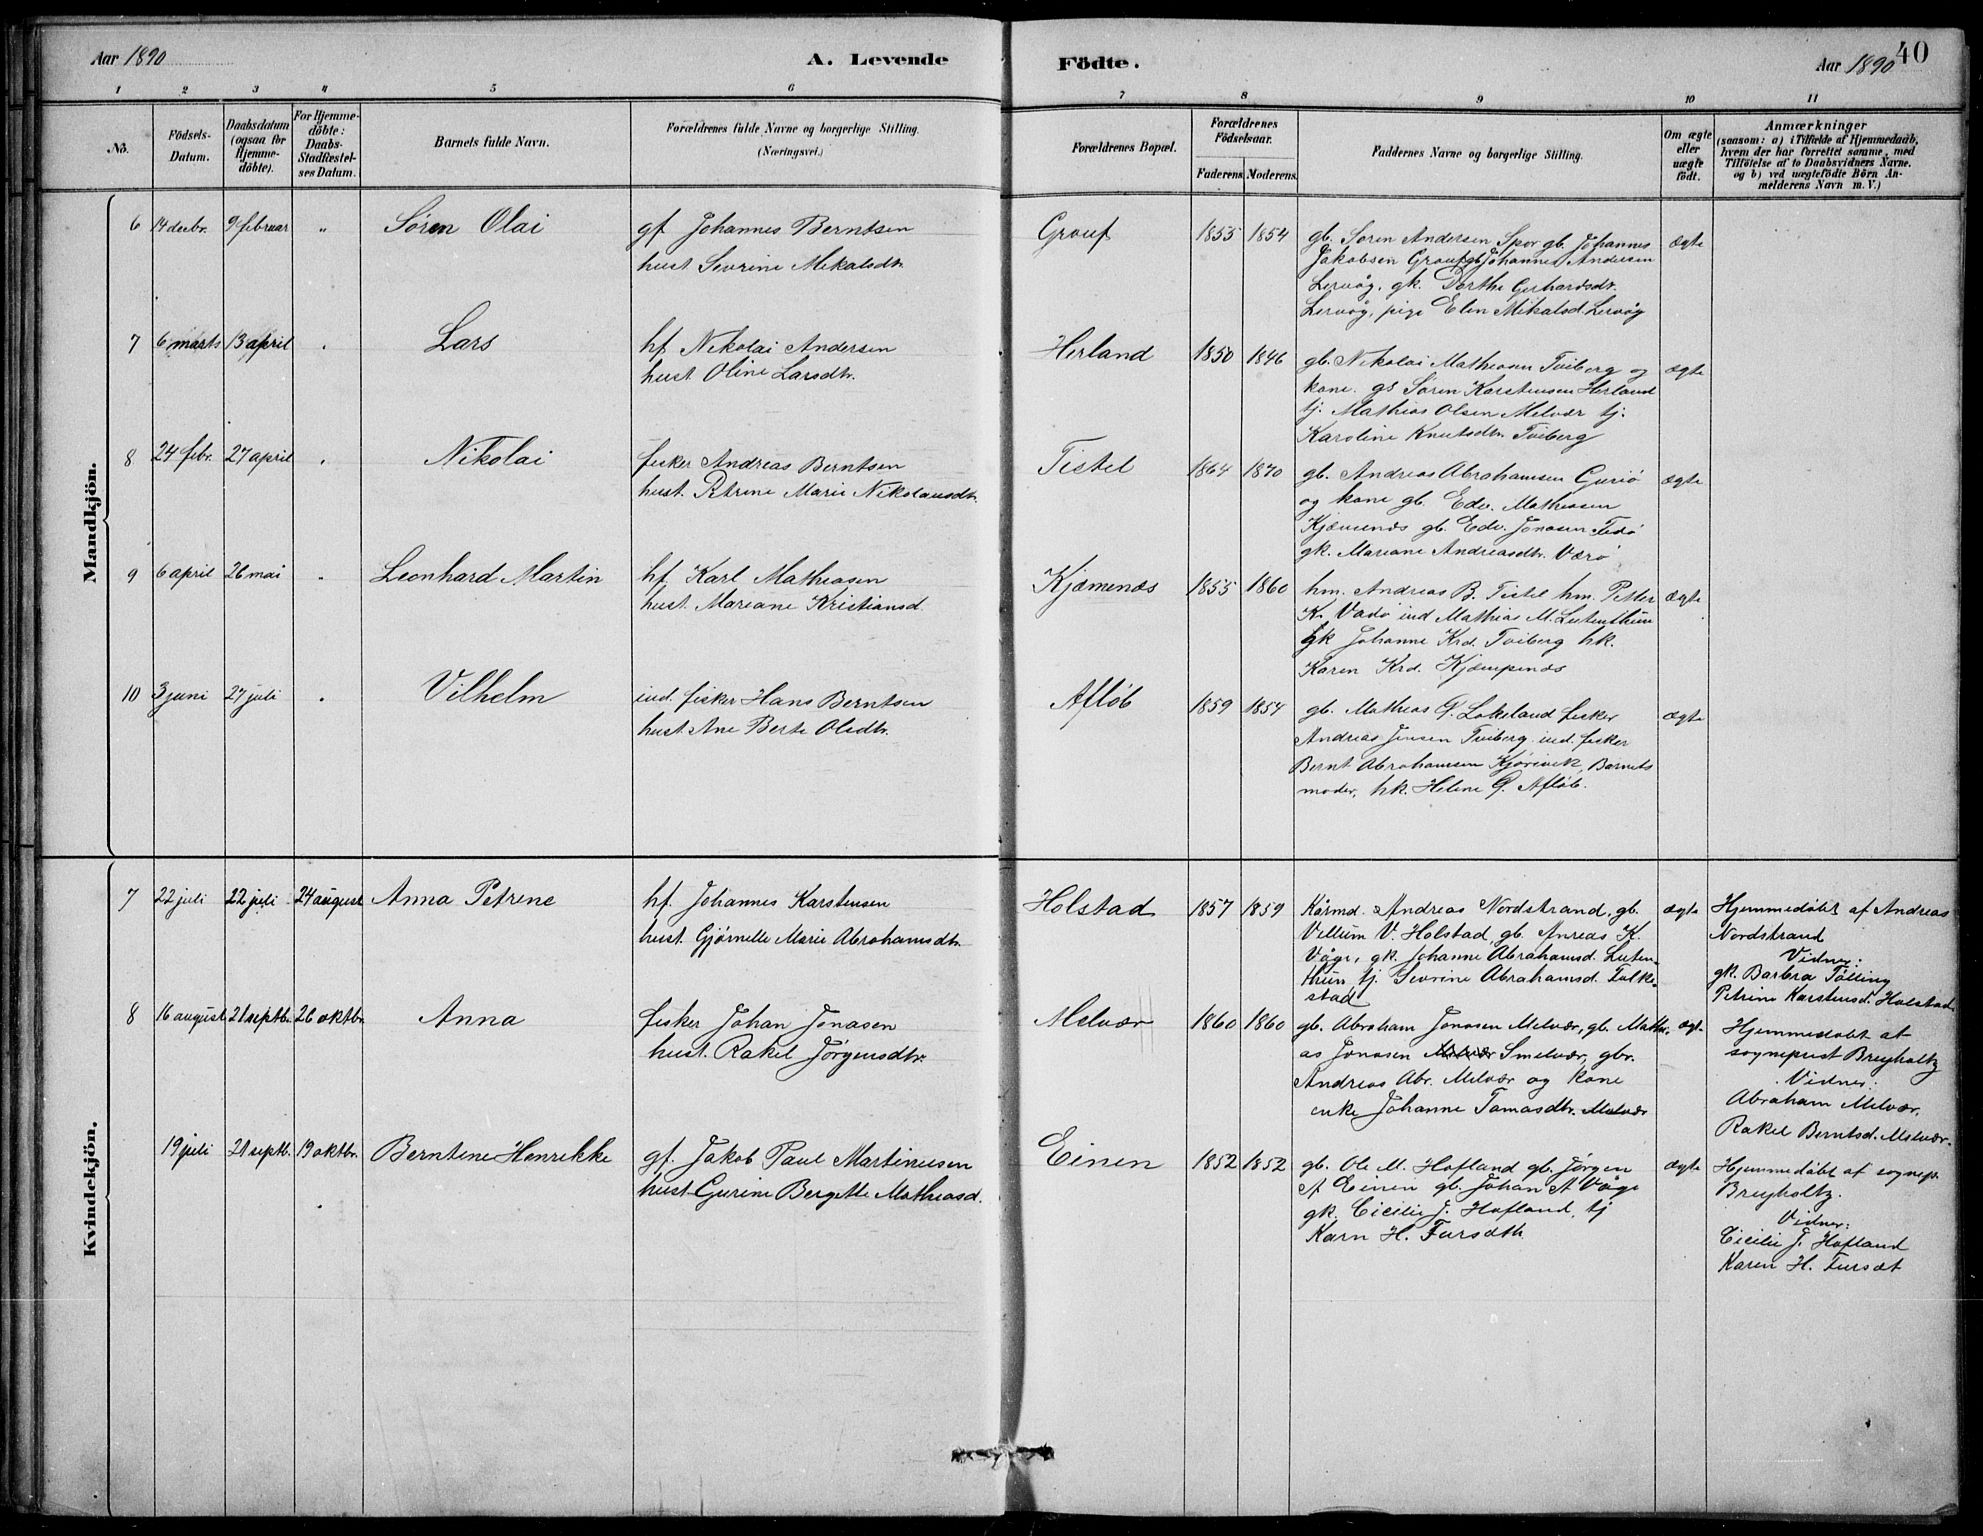 Aar 1890
A. Levende
Födte.
Aar 1890
40
1 2 3 4 5 6 7 8 9 10 11
No.
Födsels-Datum.
Daabsdatum (ogsaa for Hjemme-döbte).
For Hjemme-döbte: Daabs-Stadfæstel-ses Datum.
Barnets fulde Navn.
Forældrenes fulde Navne og borgerlige Stilling.
(Næringsvei.)
Forældrenes Bopæl.
Forældrenes Födselsaar.
Faderens Moderens.
Faddernes Navne og borgerlige Stilling.
Om ægte eller uægte födt.
Anmærkninger
(saasom: a) i Tilfælde af Hjemmedaab, hvem der har forrettet samme, med Tilföielse af to Daabsvidners Navne, og b) ved uægtefödte Börn An-melderens Navn m. V.)
Mandkjön.
6 14 decbr. 9 februar " Søren Olai
gf Johannes Berntsen
hust Severine Mikalsdtr.
Grouf 1855 1854
gb. Søren Andersen Spor gb. Johannes
Jakobsen Grouf gb Johannes Andersen
Lervåg, gk. Dorthe Gerhardsdtr.
Lervåg, pige Elen Mikalsd. Lervåg
ægte
7 6 marts 13 april " Lars
hf Nikolai Andersen
hust. Oline Larsdtr.
Herland 1850 1846
gb. Nikolai Mathiasen Tviberg og
kone. gs Søren Karstensen Herland
tj. Mathias Olsen Melvær tj.
Karoline Knutsdtr. Tviberg
ægte
8 24 febr. 27 april " Nikolai
fisker Andreas Berntsen
hust. Petrine Marie Nikolausdtr.
Tistel 1864 1870
gb. Andreas Abrahamsen Guriø
og kone gb. Edv. Mathiasen
Kjæmenæs gb. Edv. Jonasen
gk. Mariane Andreasdtr. Værø
ægte
9 6 april 26 mai " Leonhard Martin
hf Karl Mathiasen
hust. Mariane Kristiansd.
Kjæmenæs 1855 1860
hm. Andreas B. Tistel hm. Petter
K. Vadø ind Mathias M. Lutenthun
gk Johanne Krd. Tviberg hk.
Karen Krd. Kjæmpenæs
ægte
10 3 juni 27 juli " Vilhelm
ind. fisker Hans Berntsen
hust. Ane Berte Olsdtr.
Afløb 1859 1854
gb. Mathias G. Lakeland fisker
Andreas Jensen Tviberg ind. fisker
Bernt Abrahamsen Kjørevik, Barnets
moder, hk. Helene G. Afløb.
ægte
Kvindekjön.
7 22 juli 22 juli 24 august Anna Petrine
hf. Johannes Karstensen
hust. Gjørnelle Marie Abrahamsdtr.
Holstad 1857 1859
Kårmd. Andreas Nordstrand, gb.
Vellum V. Holstad, gb. Anreas K.
Våge, gk. Johanne Abrahamsd. Luten-
thun, tj. Severine Abrahamsd. Folke-
stad
ægte
Hjemmedøbt af Andreas
Nordstrand
Vidner:
gk. Barbra Tølling
Petrine Karstensd. Holstad
8 16 august 21 septb. 26 oktbr. Anna
fisker Johan Jonasen
hust. Rakel Jørgensdtr.
Melvær 1860 1860
gb. Abraham Jonasen Melvær, gb. Mathi-
as Jonasen Melvær Smelvær, gbr.
Andreas Abr. Melvær og kone
enke Johanne Tomasdtr. Melvær
ægte
Hjemmedøbt af
sognepræst Breyholtz
Vidner:
Abraham Melvær,
Rakel Berntsd. Melvær.
19 juli 21 septb. 19 oktbr. Berntine Henrikke
gf. Jakob Paul Martinusen
hust Gurine Bergitte Mathiasd.
Einen 1852 1852
gb. Ole M. Hofland gb. Jørgen
A Einen gb. Johan A Våge
gk. Cicilie J. Hofland, tj
Karn H. Fursdth.
ægte
Hjemmedøbt af sognep.
Breyholtz.
Vidner:
Cicilie J. Hofland
Karen H. Fursæt